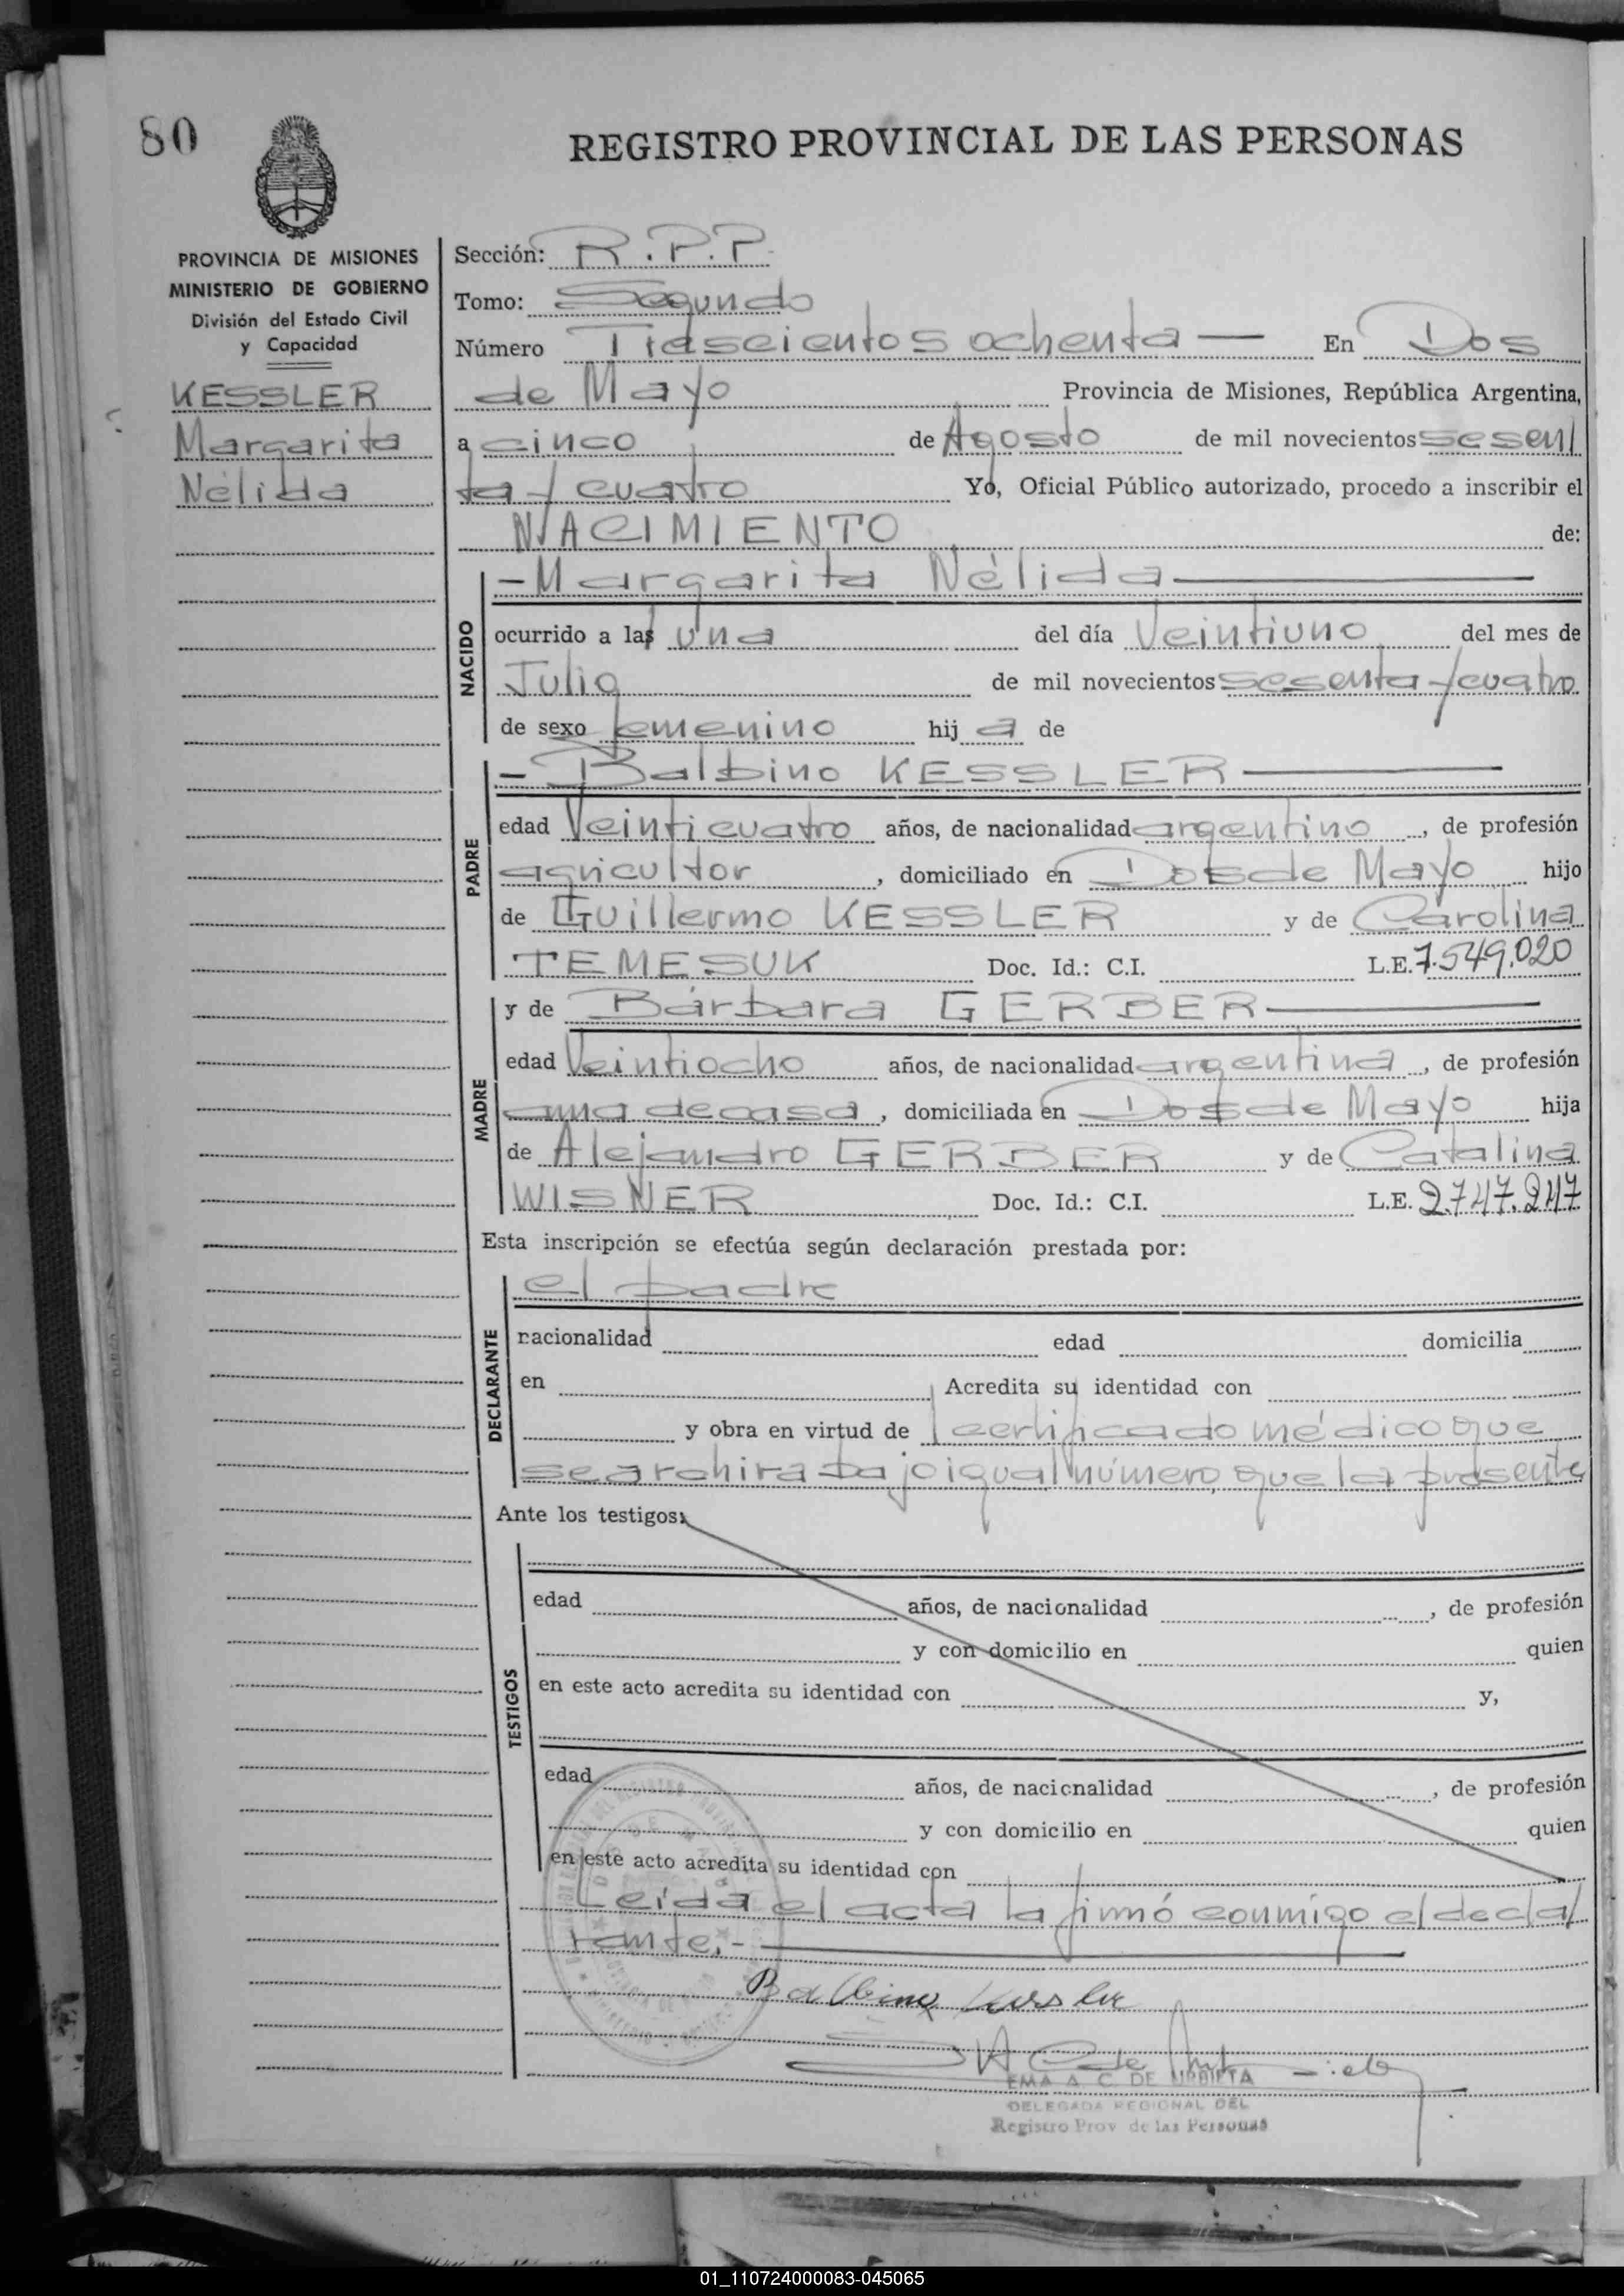 80
REGISTRO PROVINCIAL DE LAS PERSONAS
PROVINCIA DE MISIONES
MINISTERIO DE GOBIERNO
División del Estado Civil
y Capacidad
KESSLER
Margarita
Nélida
Sección: R.P.P.
Tomo: Segundo
Número Trescientos ochenta — En Dos
de Mayo Provincia de Misiones, República Argentina,
a cinco de Agosto de mil novecientos sesen/
ta y cuatro Yo, Oficial Público autorizado, procedo a inscribir el
NACIMIENTO de:
NACIDO
- Margarita Nélida —
ocurrido a las una del día Veintiuno del mes de
Julio de mil novecientos sesenta y cuatro
de sexo femenino hij a de
PADRE
- Balbino KESSLER —
edad Veinticuatro años, de nacionalidad argentino, de profesión
agricultor, domiciliado en Dos de Mayo hijo
de Guillermo KESSLER y de Carolina
TEMESUK Doc. Id.: C.I. L.E. 7.549.020
MADRE
y de Bárbara GERBER —
edad Veintiocho años, de nacionalidad argentina, de profesión
ama de casa, domiciliada en Dos de Mayo hija
de Alejandro GERBER y de Catalina
WISNER Doc. Id.: C.I. L.E. 2.747.247
Esta inscripción se efectúa según declaración prestada por:
DECLARANTE
el padre
nacionalidad edad domicilia
en Acredita su identidad con
y obra en virtud de certificado médico que
se archiva bajo igual número que la presente
Ante los testigos:
TESTIGOS
edad años, de nacionalidad , de profesión
y con domicilio en quien
en este acto acredita su identidad con y,
edad años, de nacionalidad , de profesión
y con domicilio en quien
en este acto acredita su identidad con
Leída el acta la firmó conmigo el decla/
rante.- —
Balbino Kessler
EMA A. C. DE URRIETA
DELEGADA REGIONAL DEL
Registro Prov de las Personas
01_110724000083-045065